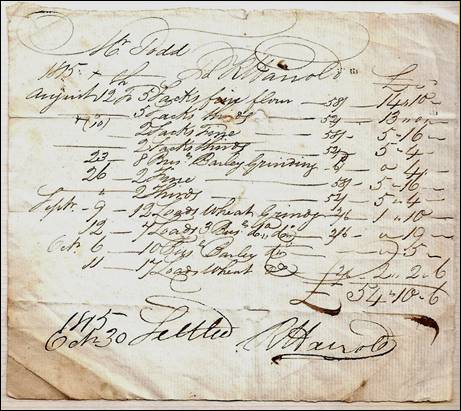 Mr Todd
To R Harrold
£ s
August 12 To 5 Sacks fine flour — 58/ — 14 „ 10 „
5 Sacks thirds — 52/ — 13 „
2 Sacks fine — 58/ — 5 „ 16 —
2 Sacks thirds — 52/ — 5 „ 4 —
23 — 8 Bus Barley Grinding — 6 — „ 4 „
26 — 2 Fine — 58 — 5 „ 16 —
„ 2 Thirds — 52 — 5 „ 4 —
Septr 9 — 12 Loads Wheat Grindg 2/6 — 1 „ 10 —
12 — 7 Loads 3 Bus Do Do 2/6 —
Oct 6 — 10 Bus Barley Do — „ 5 —
11 — 17 Loads Wheat Do 2/6 2 „ 2 „ 6
£ 54 „ 10 „ 6
Octr 30 Settled R Harrold